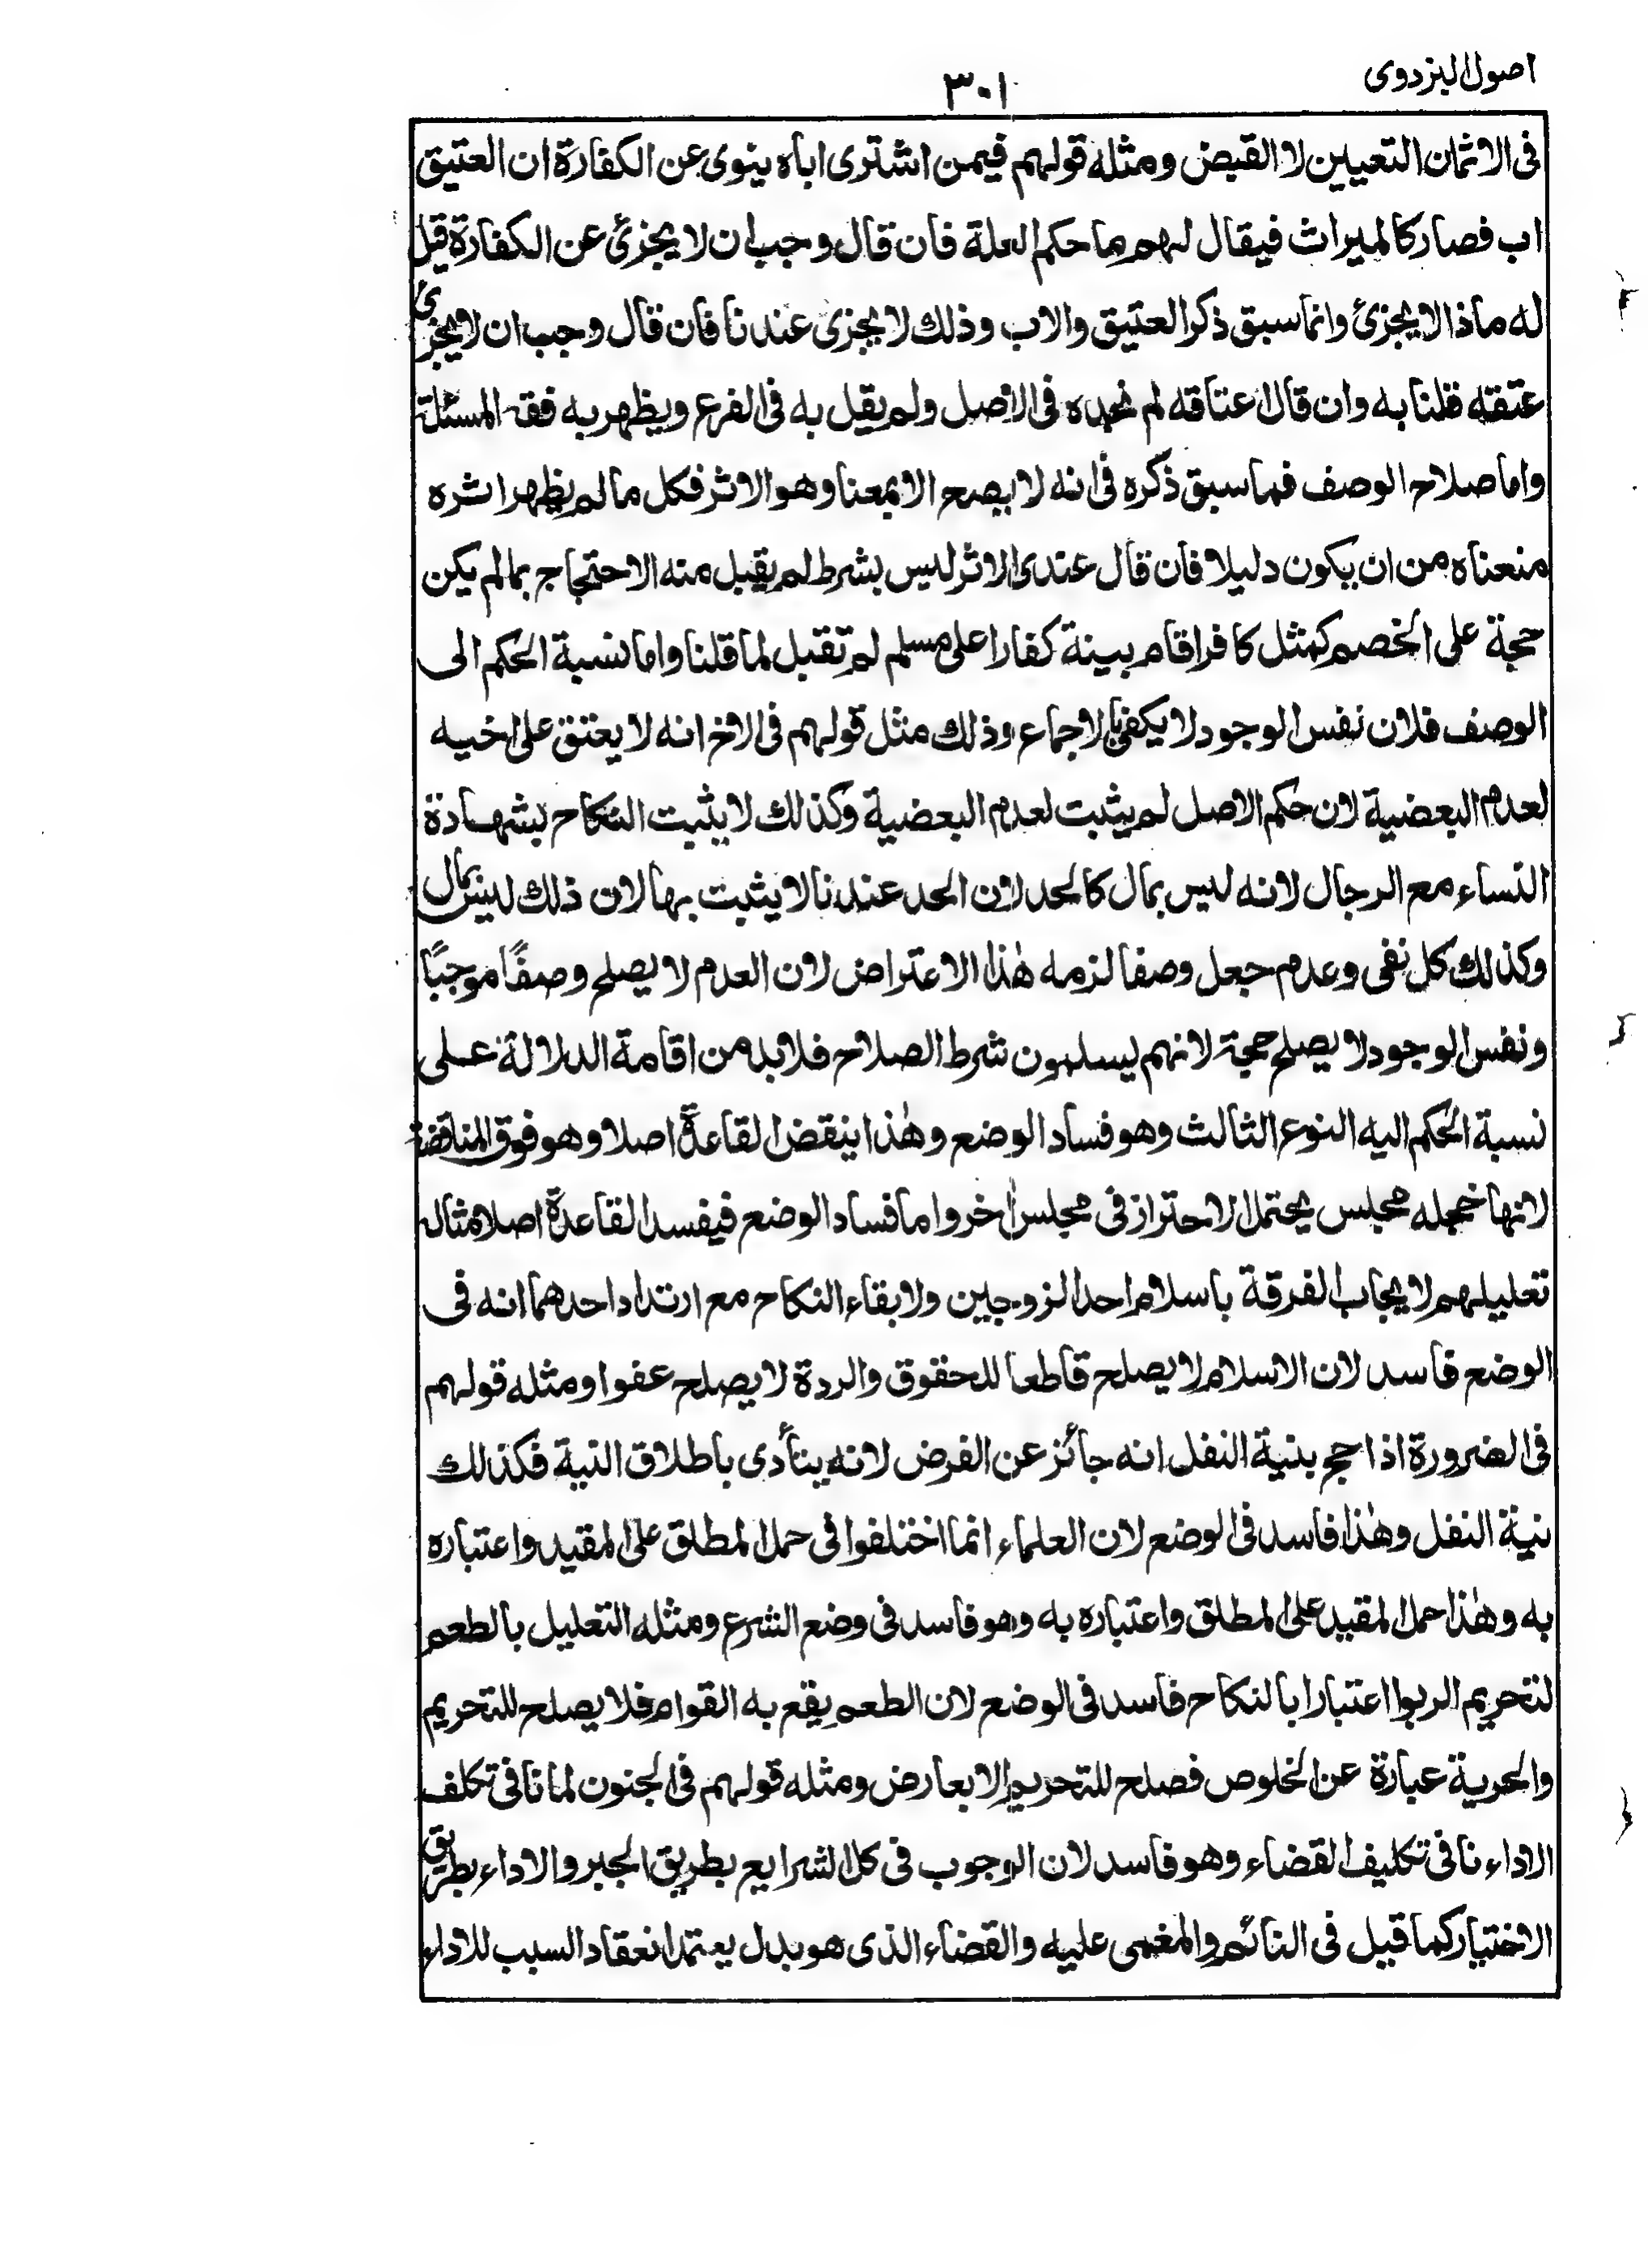 اصول البزدوی
٣٠١
فى الاثمان التعيين لا القبض ومثله قولهم فيمن اشترى اباه ينوى عن الكفارة ان العتيق
اب فصار كالميراث فيقال لهم ما حكم العلة فان قال وجب ان لا يجزئ عن الكفارة قيل
له ماذا لا يجزئ وانما سبق ذكر العتيق والاب وذلك لا يجزى عندنا فان قال وجب ان لا يجزئ
عتقه قلنا به وان قال اعتاقه لم نجده فى الاصل ولم يقل به فى الفرع ويظهر به فقه المسئلة
واما صلاح الوصف فما سبق ذكره فى انه لا يصح الا بمعناه وهو الاثر فكل ما لم يظهر اثره
منعناه من ان يكون دليلا فان قال عندى الاثر ليس بشرط لم يقبل منه الاحتجاج بما لم يكن
حجة على الخصم كمثل كافر اقام بينة كفارا على مسلم لم تقبل لما قلنا واما نسبة الحكم الى
الوصف فلان نفس الوجود لا يكفى بالاجماع وذلك مثل قولهم فى الاخ انه لا يعتق على اخيه
لعدم البعضية لان حكم الاصل لم يثبت لعدم البعضية وكذلك لا يثبت النكاح بشهادة
النساء مع الرجال لانه ليس بمال كالحد لان الحد عندنا لا يثبت بها لان ذلك ليس بمال
وكذلك كل نفى وعدم جعل وصفا لزمه هٰذا الاعتراض لان العدم لا يصلح وصفًا موجبًا
ونفس الوجود لا يصلح حجة لانهم يسلمون شرط الصلاح فلا بد من اقامة الدلالة على
نسبة الحكم اليه النوع الثالث وهو فساد الوضع وهٰذا ينقض القاعدة اصلا وهو فوق المناقضة
لانها خجله مجلس يحتمل الاحتراز فى مجلس اٰخر واما فساد الوضع فيفسد القاعدة اصلا مثاله
تعليلهم لايجاب الفرقة باسلام احد الزوجين ولابقاء النكاح مع ارتداد احدهما انه فى
الوضع فاسد لان الاسلام لا يصلح قاطعا للحقوق والردة لا يصلح عفوا ومثله قولهم
فى الضرورة اذا حج بنية النفل انه جائز عن الفرض لانه يتأدى باطلاق النية فكذلك
بنية النفل وهٰذا فاسد فى الوضع لان العلماء انما اختلفوا فى حمل المطلق على المقيد واعتباره
به وهٰذا حمل المقيد على المطلق واعتباره به وهو فاسد فى وضع الشرع ومثله التعليل بالطعم
لتحريم الربوا اعتبارا بالنكاح فاسد فى الوضع لان الطعم يقع به القوام فلا يصلح للتحريم
والحرية عبارة عن الخلوص فصلح للتحريم الا بعارض ومثله قولهم فى الجنون لما نافى تكلف
الاداء نافى تكليف القضاء وهو فاسد لان الوجوب فى كل الشرايع بطريق الجبر والاداء بطريق
الاختيار كما قيل فى النائم والمغمى عليه والقضاء الذى هو بدل يعتمد انعقاد السبب للاداء